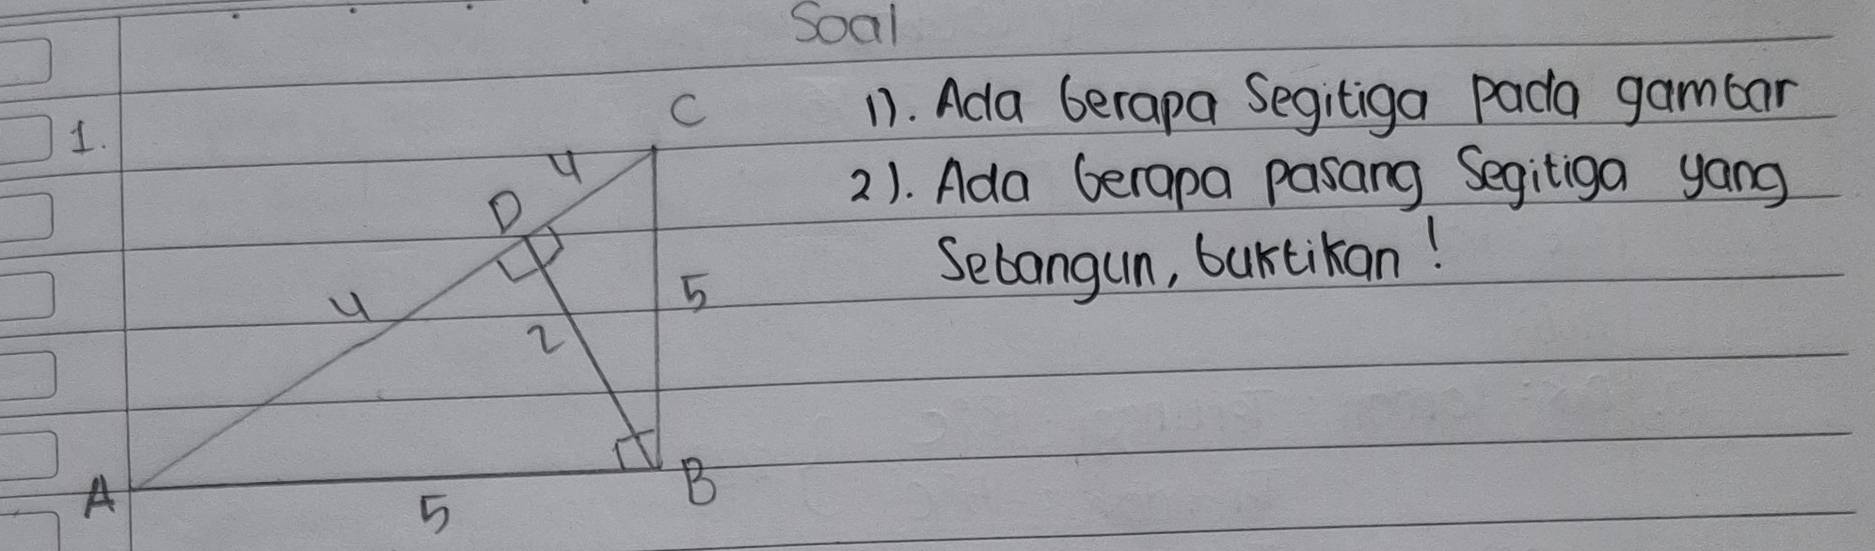 Soal
1.
C
4
D
4
2
5
A
5
B
1). Ada berapa Segitiga pada gambar
2). Ada berapa pasang Segitiga yang
Sebangun, buktikan!